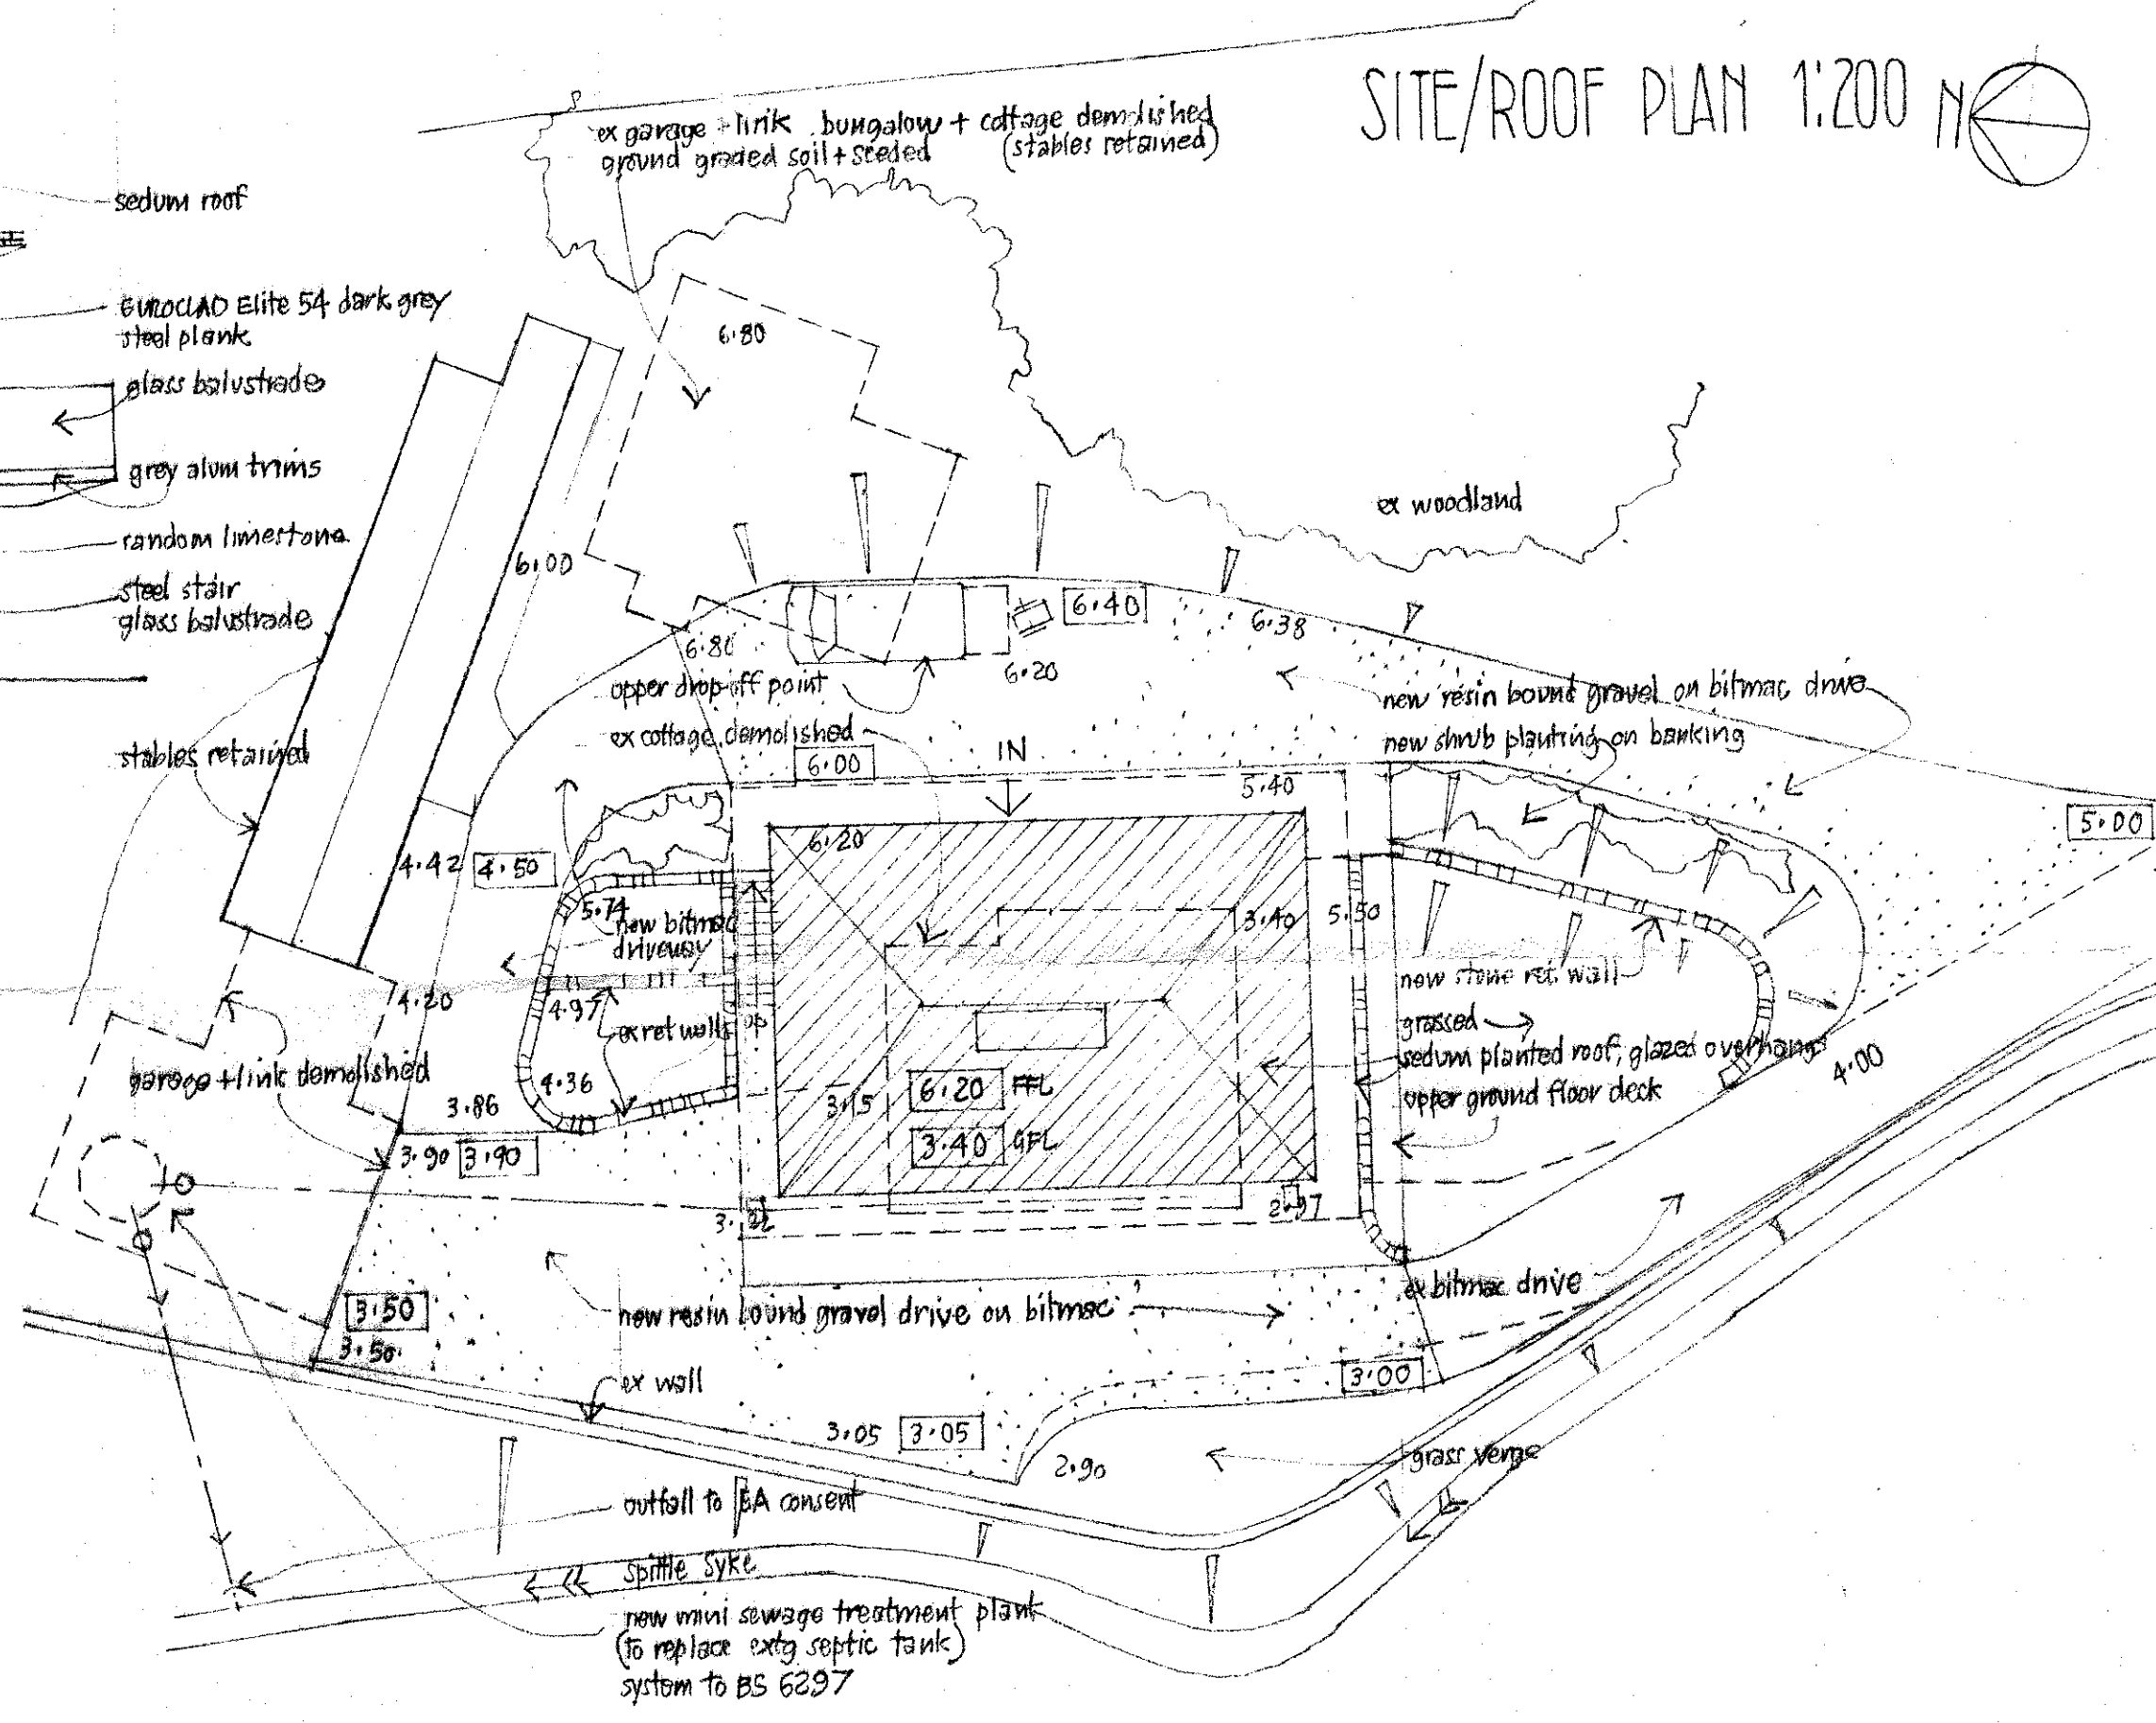 SITE/ROOF PLAN 1:200 N
ex garage + link bungalow + cottage demolished
ground graded soil + seeded (stables retained)
sedum roof
EUROCLAD Elite 54 dark grey
steel plank
glass balustrade
grey alum trims
random limestone
steel stair
glass balustrade
6.80
ex woodland
6.00
6.40
6.38
6.80
6.20
upper drop off point
ex cottage demolished
6.00
IN
5.40
new resin bound gravel on bitmac drive
new shrub planting on banking
stables retained
5.00
6.20
4.42
4.50
5.74
new bitmac
driveway
3.40
5.50
new stone ret. wall
4.20
4.97
ex ret walls
up
grassed
sedum planted roof, glazed overhang
upper ground floor deck
4.00
garage + link demolished
3.86
4.36
3.15
6.20 FFL
3.40 GFL
3.90
3.90
2.97
3.50
3.50
new resin bound gravel drive on bitmac
ex bitmac drive
ex wall
3.00
3.05
3.05
2.90
grass verge
outfall to EA consent
Spittle Syke
new mini sewage treatment plant
(to replace extg septic tank)
system to BS 6297